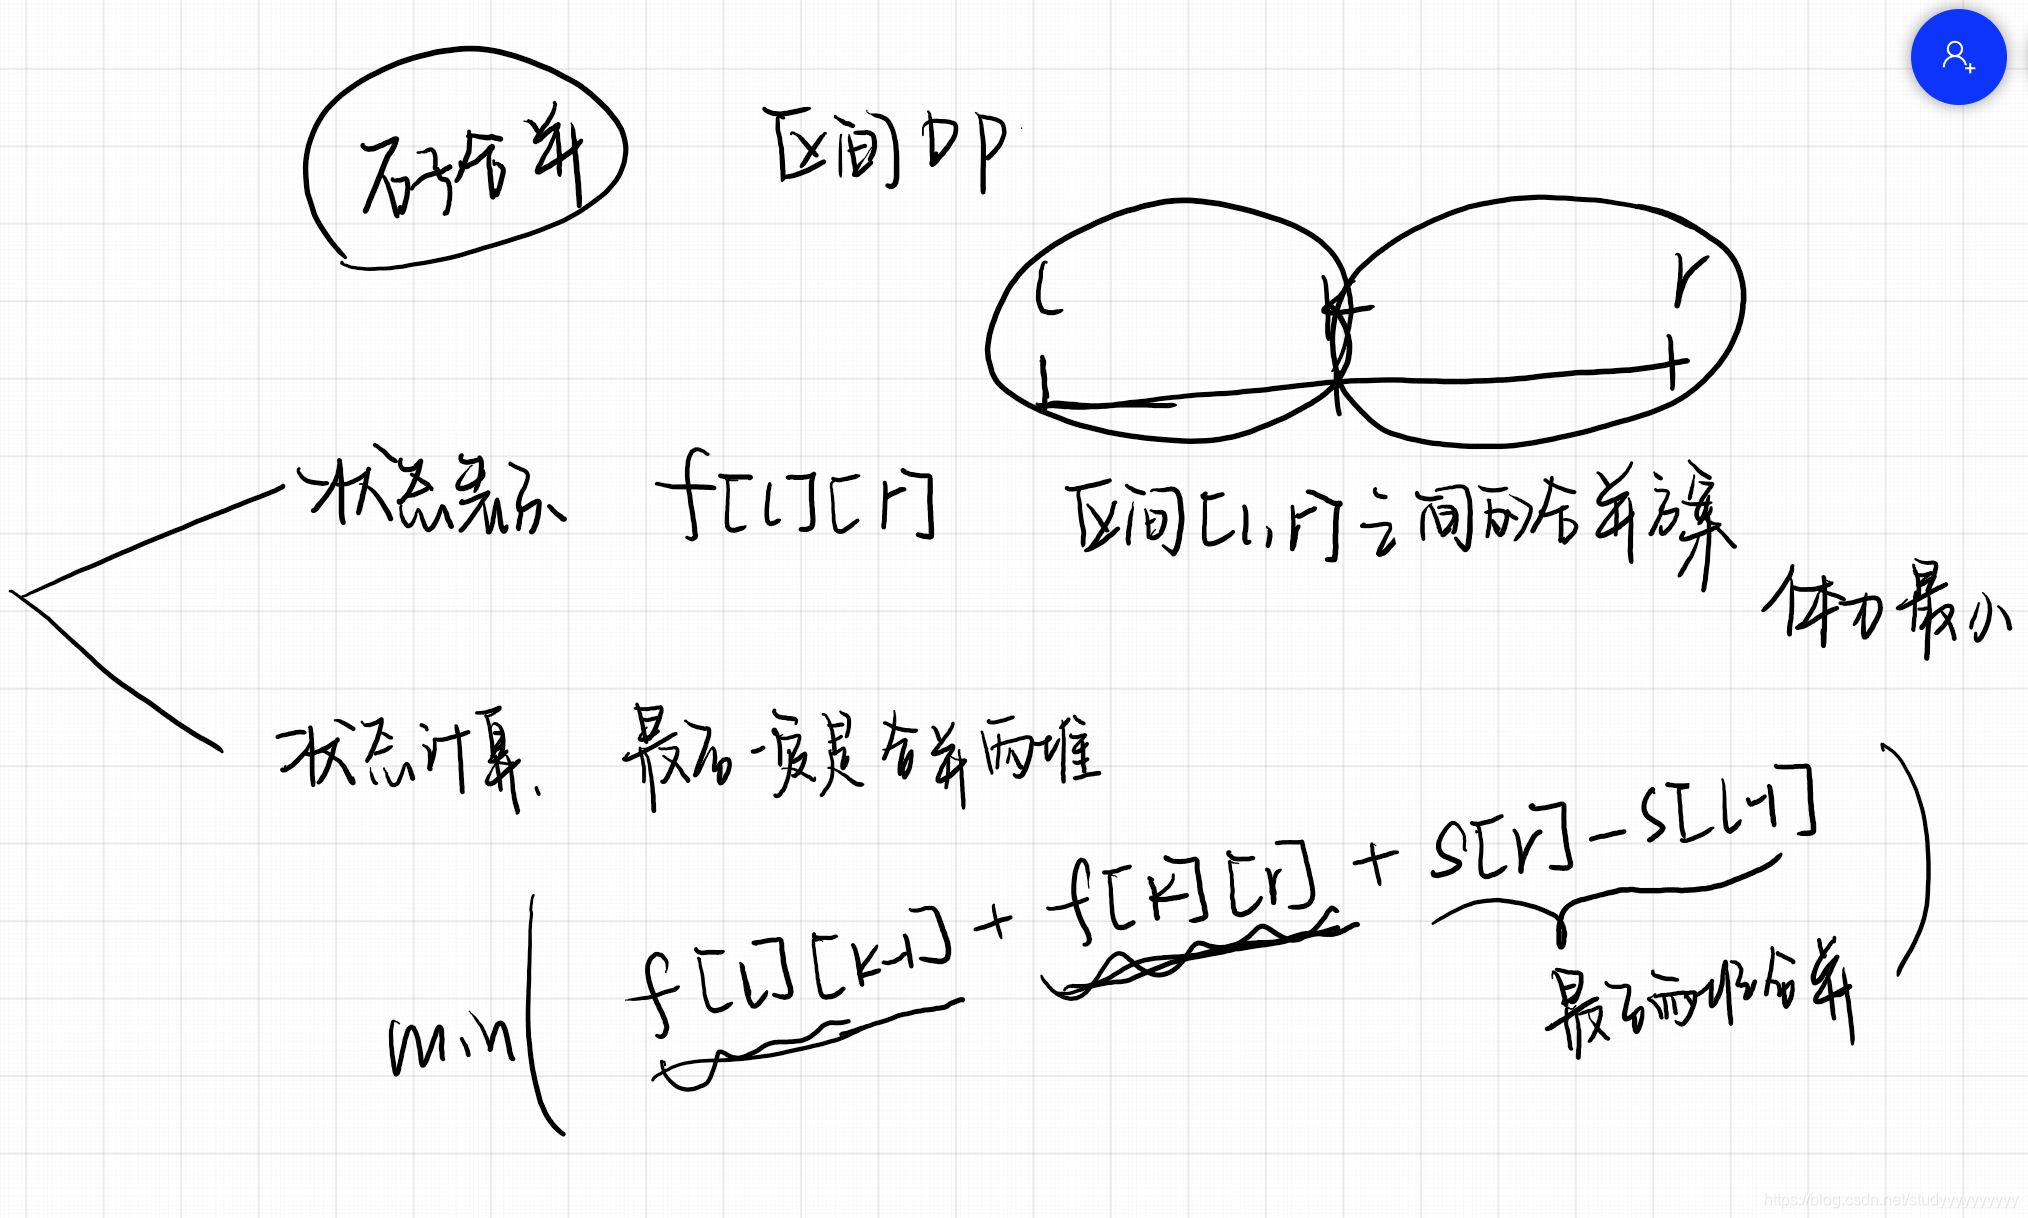 石子合并
区间DP
l k r
状态表示 f[l][r] 区间[l,r]之间的合并方案
体力最小
状态计算. 最后一度是合并两堆
min( f[l][k-1] + f[k][r] + s[r]-s[l-1] )
最后两堆合并
https://blog.csdn.net/studyyyyyyyyyy